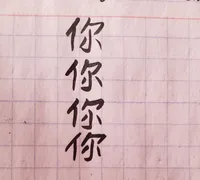 你
你
你
你